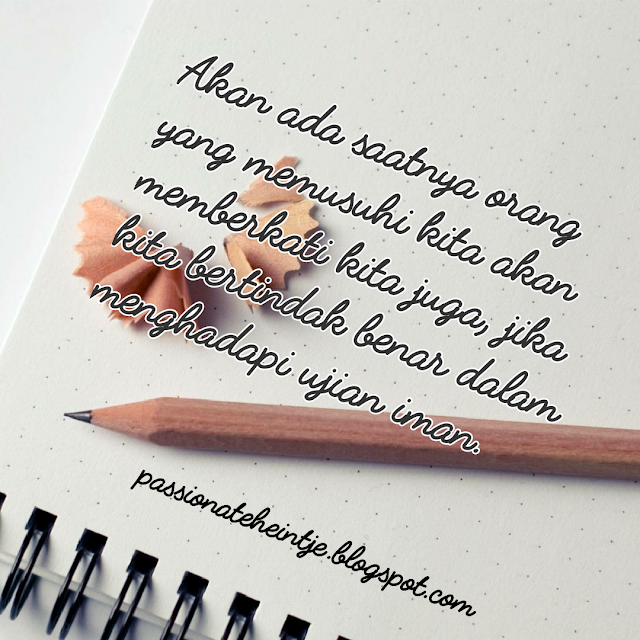 Akan ada saatnya orang
yang memusuhi kita akan
memberkati kita juga, jika
kita bertindak benar dalam
menghadapi ujian iman.
passionateheintje.blogspot.com